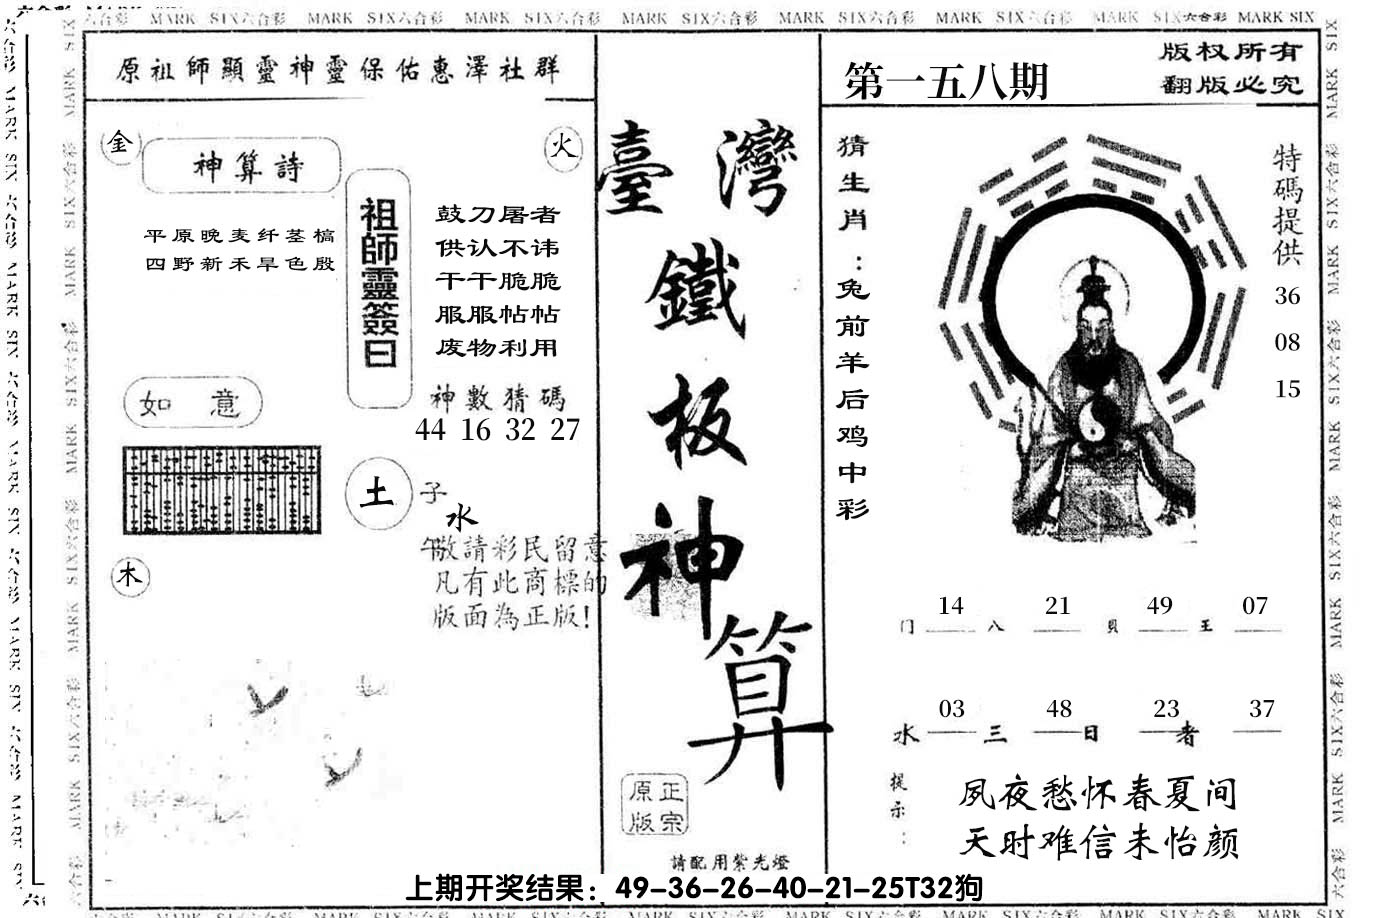 MARK SIX六合彩 MARK SIX六合彩 MARK SIX六合彩 MARK SIX六合彩 MARK SIX六合彩 MARK SIX六合彩 MARK SIX六合彩 MARK SIX
原祖師顯靈神靈保佑惠澤社群
金
火
神算詩
平原晚麦纤茎槁
四野新禾旱色殷
祖師靈簽曰
鼓刀屠者
供认不讳
干干脆脆
服服帖帖
废物利用
如意
神數猜碼
44 16 32 27
土
子
水
午
木
敬請彩民留意
凡有此商標的
版面為正版!
臺灣
鐵
板
神
算
正宗
原版
請配用紫光燈
第一五八期
版权所有
翻版必究
猜生肖:兔前羊后鸡中彩
特碼提供
36
08
15
14 21 49 07
门 八 貝 王
03 48 23 37
水 三 日 者
提示:
夙夜愁怀春夏间
天时难信未怡颜
上期开奖结果：49-36-26-40-21-25T32狗